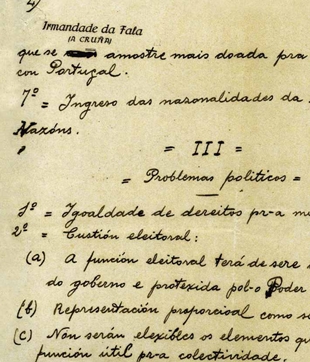 4)
Irmandade da Fala
(A CRUÑA)
que se amostre mais doada pra
con Portugal.
7º = Ingreso das nazonalidades da
Nazóns.
= III =
= Problemas políticos =
1º = Igoaldade de dereitos pr-a m
2º = Custión eleitoral:
(a) A función eleitoral terá de sere
do goberno e protexida pol-o Poder
(b) Representación proporcioal como s
(c) Non serán elexibles os elementos qu
función útil pr-a colectividade.